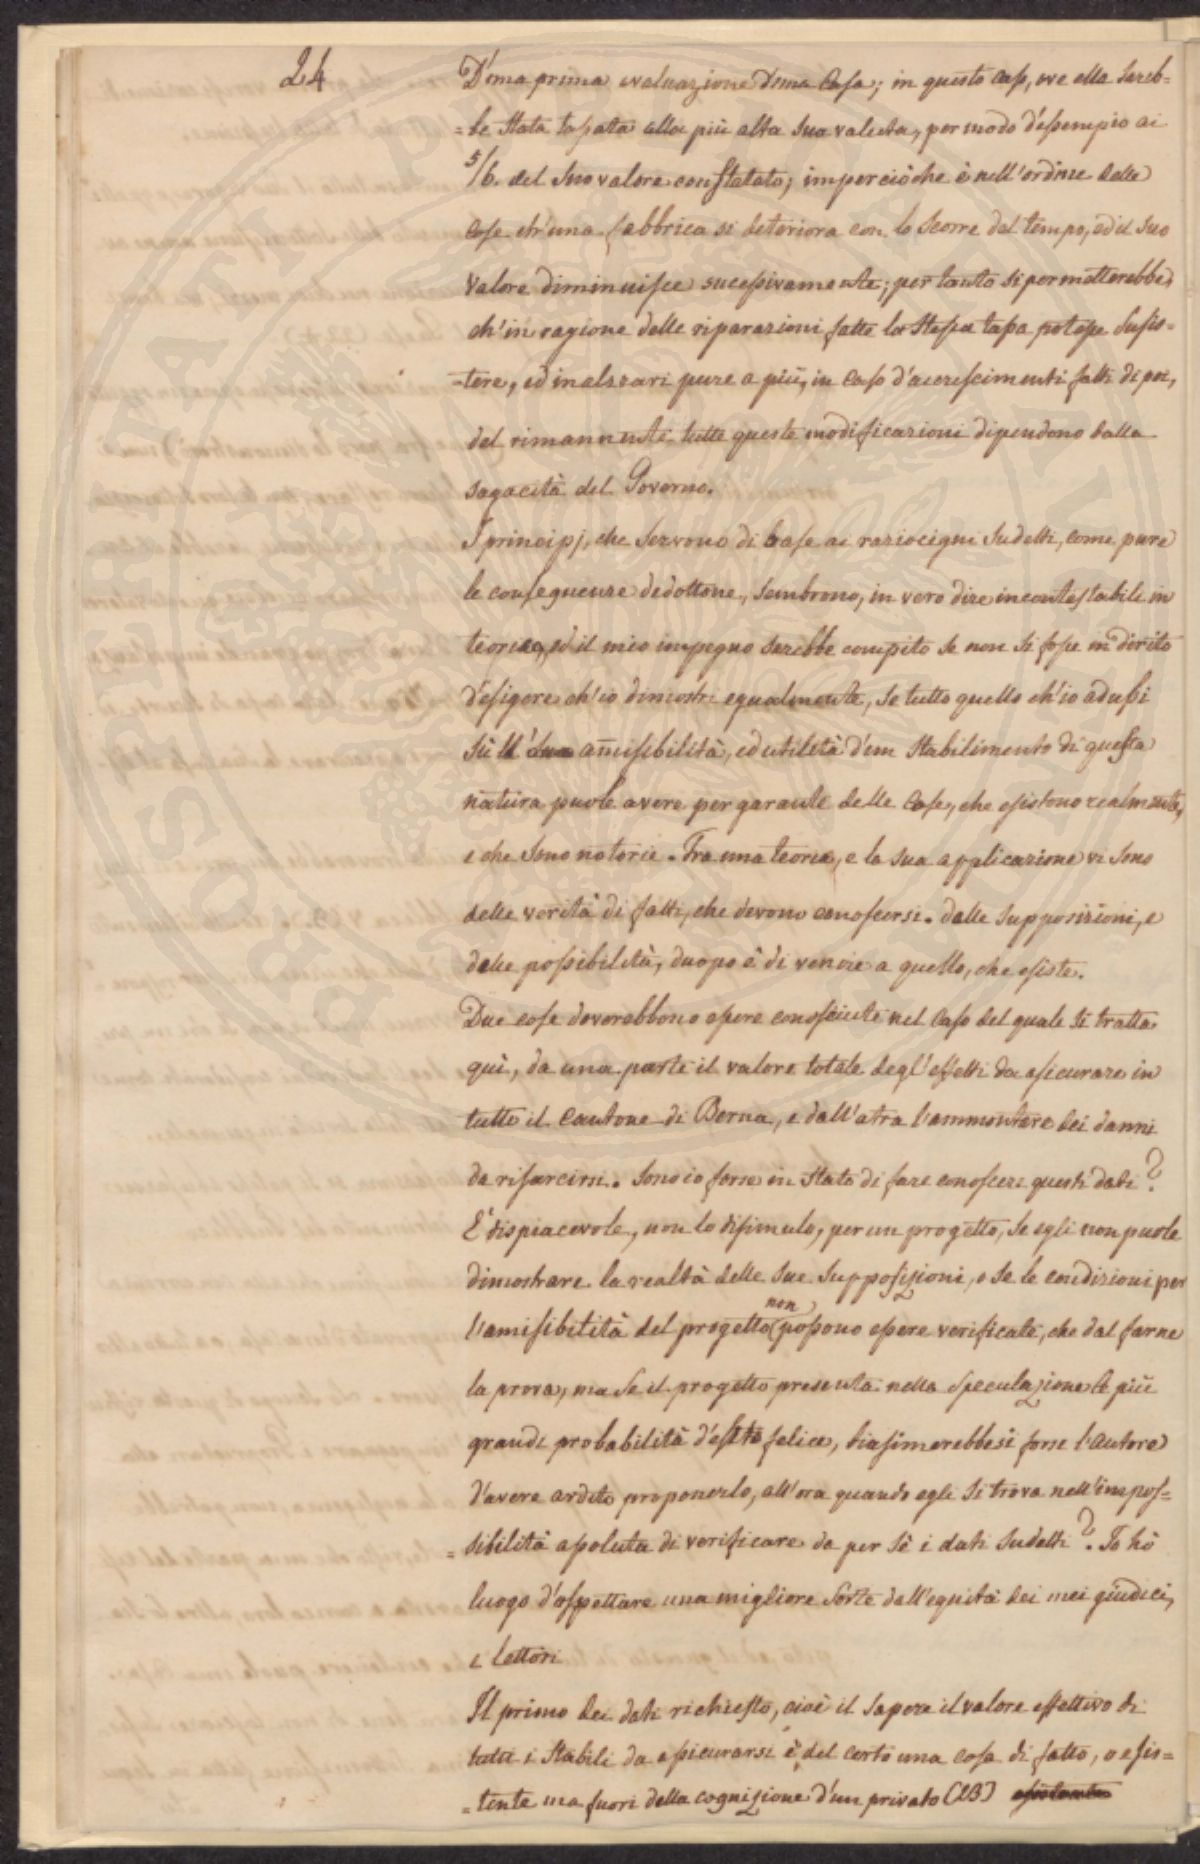 24
D'una prima evaluazione d'una Casa; in questo caso, ove ella sareb=
=be stata tassata alla più alta sua valuta, per modo d'essempio ai
5/6. del suo valore constatato; imperciòche è nell'ordine delle
Cose ch'una fabbrica si deteriora con lo scorre del tempo, ed il suo
valore diminuisce sucessivamente; per tanto si permetterebbe,
ch'in ragione delle riparazioni fatte la stessa tassa potesse susis=
=tere, ed inalzzari pure a più, in caso d'acrescimenti fatti di poi,
del rimannente tutte queste modificazioni dipendono dalla
sagacità del Governo.
I principj, che servono di base ai raziocigni sudetti, come pure
le conseguenze dedottone, sembrono, in vero dire incontestabili in
teoria, ed il mio impegno sarebbe compito se non si fosse in dirito
d'esigere ch'io dimostri egualmente, se tutto quello ch'io adussi
sull' amisibilità, ed utilità d'un stabilimento di questa
natura puole avere per garante delle Cose, che esistono realmente,
e che sono notorie. Fra una teoria, e la sua applicazione vi sono
delle verità di fatti, che devono conoscersi. dalle supposizioni, e
dalle possibilità, duopo è di venire a quello, che esiste.
Due cose doverebbono essere conosciute nel Caso del quale si tratta
quì, da una parte il valore totale degl'effetti da assicurare in
tutto il Cantone di Berna, e dall'atra l'ammontare dei danni
da risarcirsi. Sono io forse in stato di fare conoscere questi dati?
E' dispiacevole, non lo disimulo, per un progetto, se egli non puole
dimostrare la realtà delle sue supposizioni, o se le condizioni per
l'amisibilità del progetto non possono essere verificate, che dal farne
la prova, ma se il progetto presenta nella speculazione le più
grandi probabilità d'esito felice, biasimerebbesi forse l'autore
d'avere ardito proponerlo, all'ora quando egli si trova nell'impos=
=sibilità assoluta di verificare da per sè i dati sudetti? Io hò
luogo d'asspettare una migliore sorte dall'equità dei miei giudici,
e lettori
Il primo dei dati richiesto, cioè il sapere il valore effettivo di
tutti i stabili da assicurarsi è del certo una cosa di fatto, o esis=
=tente ma fuori della cognizione d'un privato (23)